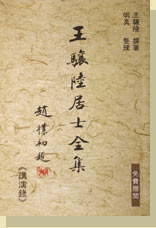 王驤陸 撰著
整理
免費贈閱
王驤陸居士全集
趙樸初題
《講演錄》